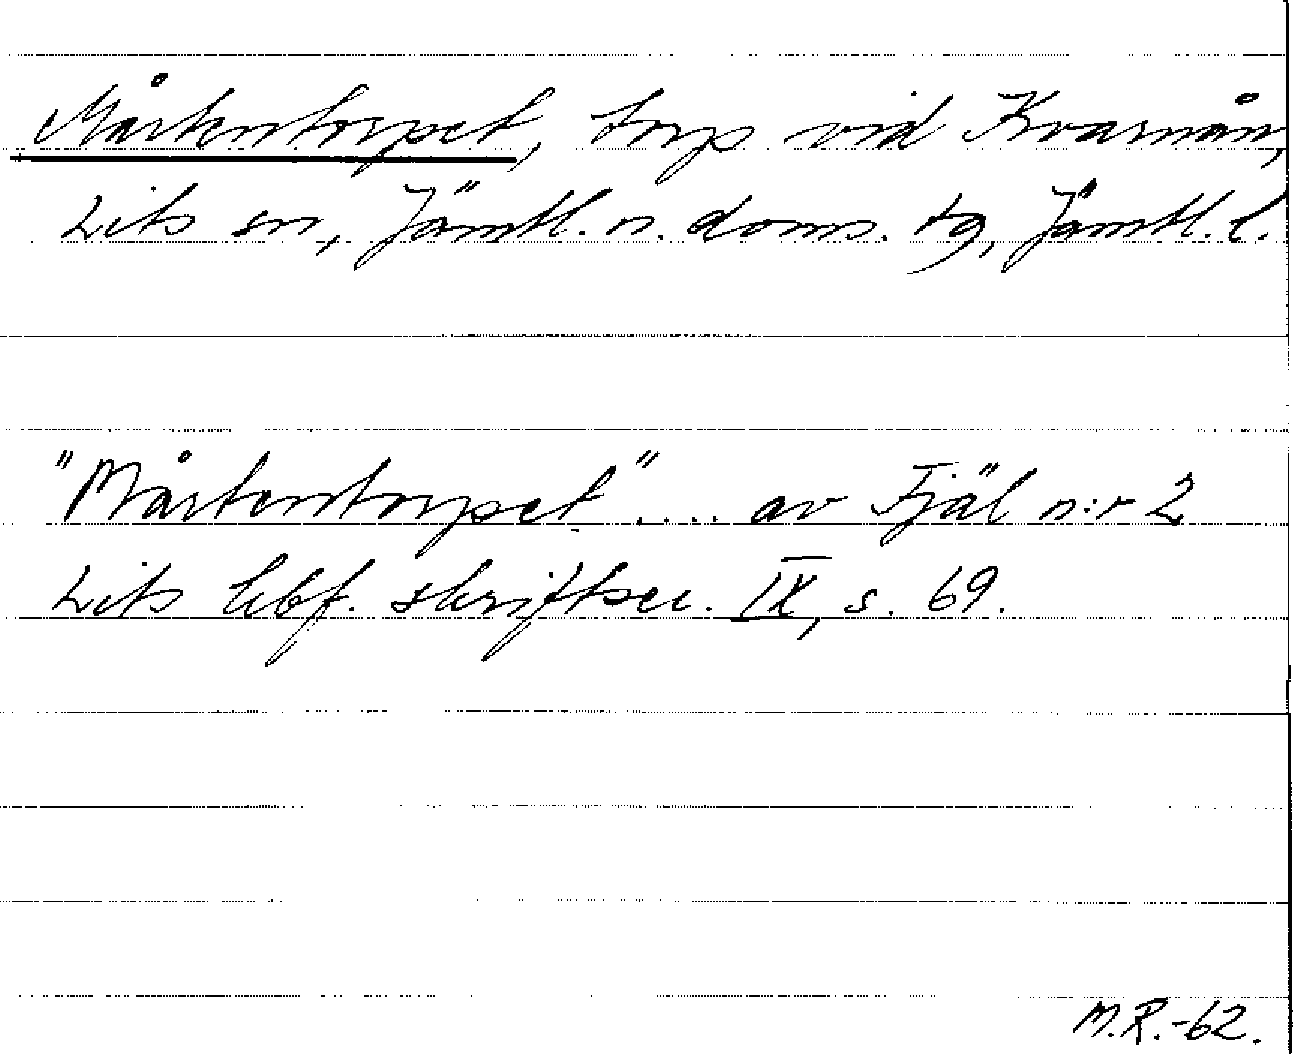 Mårtentorpet, torp vid Kvarnån,
Lits sn, Jämtl. n. doms. tg, Jämtl. l.
"Mårtentorpet" .... av Fjäl n:r 2
Lits hbf. skriftser. IX, s. 69.
M.R.-62.